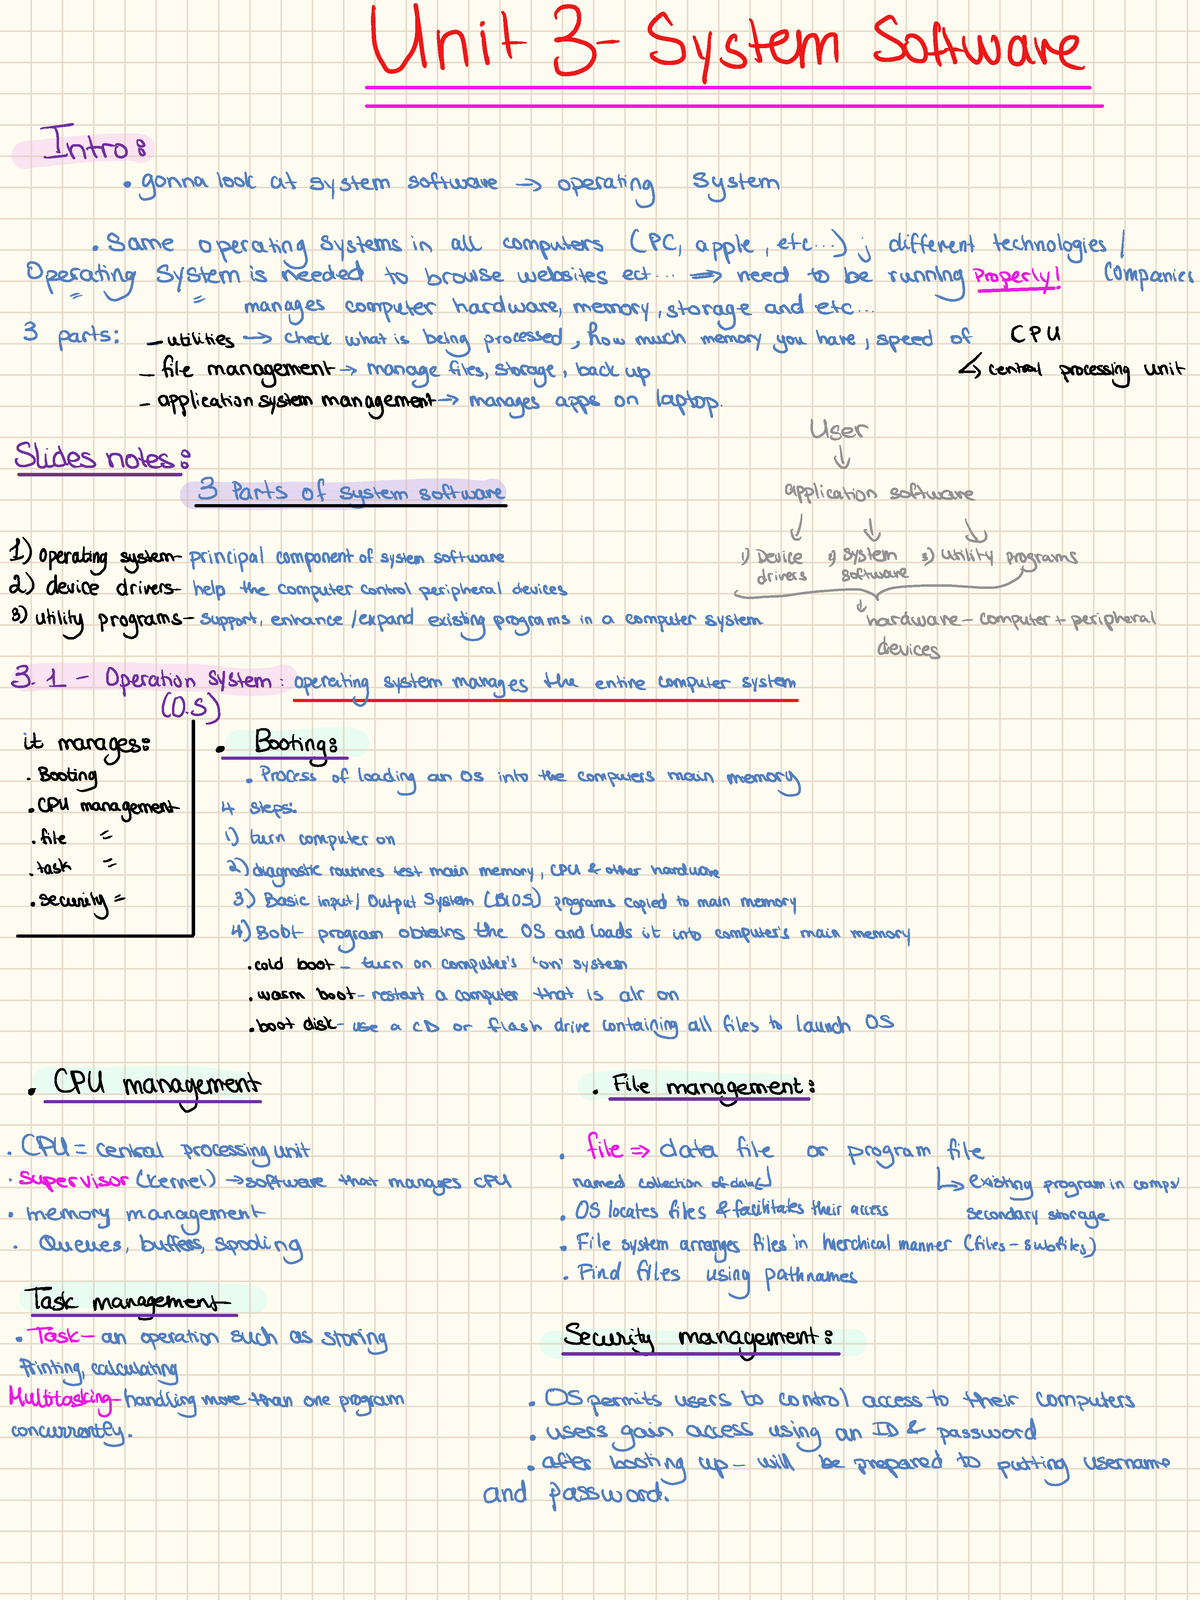 Unit 3- System Software
Intro:
• gonna look at system software → operating system
• Same operating systems in all computers (PC, apple, etc...) ; different technologies / companies
Operating System is needed to browse websites ect... ⇒ need to be running Properly!
= = manages computer hardware, memory, storage and etc...
3 parts: – utilities → check what is being processed, how much memory you have, speed of CPU
↳ central processing unit
– file management → manage files, storage, back up
– application system management → manages apps on laptop.
Slides notes:
3 Parts of system software
1) operating system- principal component of system software
2) device drivers- help the computer control peripheral devices
3) utility programs- support, enhance/expand existing programs in a computer system
User
↓
application software
↓ ↓ ↓
1) Device drivers 2) system software 3) utility programs
↓
hardware – computer + peripheral
devices
3.1 – Operation system: operating system manages the entire computer system
(O.S)
it manages:
. Booting
. CPU management
. file =
. task =
. security =
• Booting:
. Process of loading an OS into the computers main memory
4 steps:
1) turn computer on
2) diagnostic routines test main memory, CPU & other hardware
3) Basic input/ Output System (BIOS) programs copied to main memory
4) Boot program obtains the OS and loads it into computer's main memory
. cold boot – turn on computer's 'on' system
. warm boot- restart a computer that is alr on
. boot disk- use a CD or flash drive containing all files to launch OS
• CPU management
. CPU = central processing unit
. Supervisor (kernel) → software that manages CPU
• memory management
. Queues, buffers, spooling
Task management
• Task- an operation such as storing
Printing, calculating
Multitasking- handling more than one program
concurrently.
• File management:
. file ⇒ data file or program file
named collection of data ↲ ↳ existing program in comps
secondary storage
. OS locates files & facilitates their access
. File system arranges files in hierchical manner (files – subfiles)
. Find files using pathnames
Security management:
. OS permits users to control access to their computers
. users gain access using an ID & password
. after booting up – will be prepared to putting username
and password.